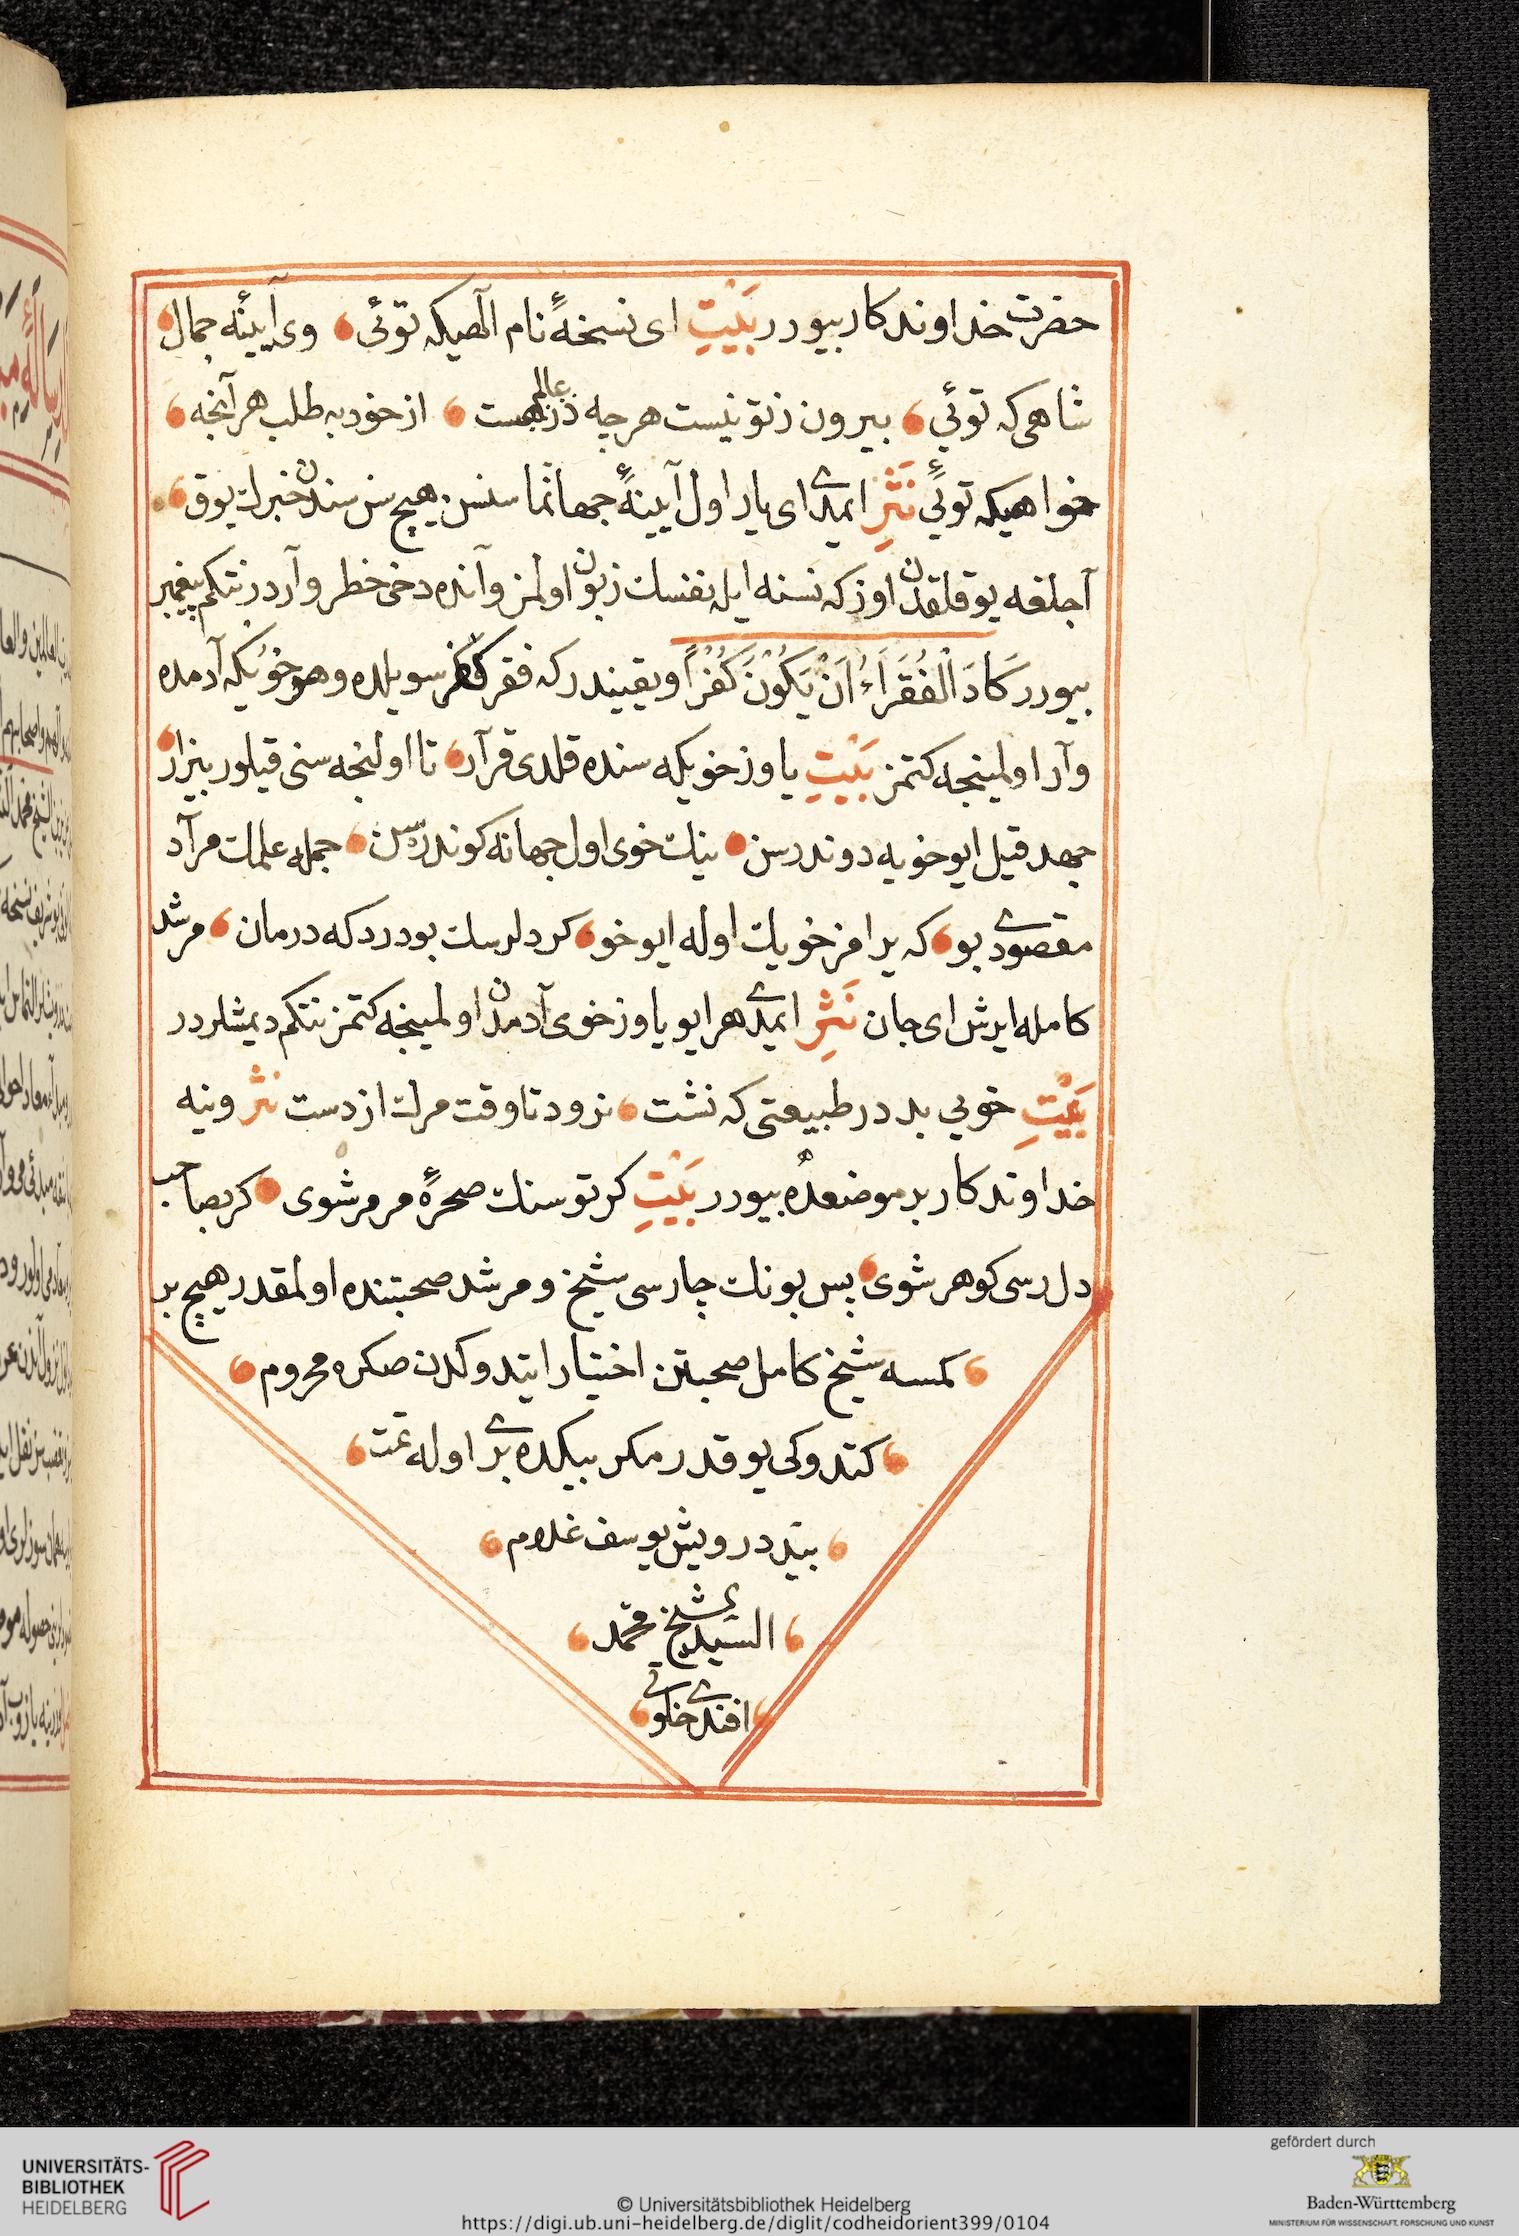 حضرت خداوندكار بيورر بَيْتِ اى نسخهٔ نام الهيكه توئى وى آيينهٔ جمال
شاهى كه توئي بيرون ز تو نيست هر چه در عالم هست از خود به طلب هر آنچه
خواهيكه توئي نَثْرِ ايمدى اى يار اول آيينهٔ جهانما سنسن هيچ سن سندن خبرك يوق
آجلقه يوقلقدن اوزكه نسنه ايله نفسك زبون اولمز وآنده دخى خطر وآردر نتكم پيغمبر
بيورر كَادَ الْفُقَرَاءُ اَنْ يَكُونَ كُفْرًا ويقيندر كه فقر كفر سويلده وهو خويكه آدمده
وآر اولمينجه كتمز بَيْتِ ياوز خويكه سنده قلدى قرآر تا اولنجه سنى قيلور بيزار
جهد قيل ايو خويه دوندرسن ينك خوى اول جهانه كوندرسن جمله علمك مرآد
مقصودى بو كه يرامز خويك اوله ايو خو كر دلرسك بو درد كه درمان مرشد
كامله ايرش اى جان نَثْرِ ايمدى هر ايو ياوز خوى آدمدن اولمينجه كتمز نتكم ديمشلردر
بَيْتِ خويي بد در طبيعتى كه نشت نرود تا وقت مرك از دست نثر وينه
خداوندكار بر موضعده بيورر بَيْتِ كر تو سنك صخرهٔ مرمر شوى كر بصاحب
دل رسى كوهر شوى پس بونك چارسى شيخ ومرشد صحبتنده اولمقدر هيچ بر
كمسه شيخ كامل صحبتن اختيار ايتدوكدن صكره محروم
كتدوكى يوقدر مكر بيكده برى اوله تمت
بيد درويش يوسف غلام
السيد الشيخ محمد
افندى خلوتى
UNIVERSITÄTS-
BIBLIOTHEK
HEIDELBERG
© Universitätsbibliothek Heidelberg
https://digi.ub.uni-heidelberg.de/diglit/codheidorient399/0104
gefördert durch
Baden-Württemberg
MINISTERIUM FÜR WISSENSCHAFT, FORSCHUNG UND KUNST